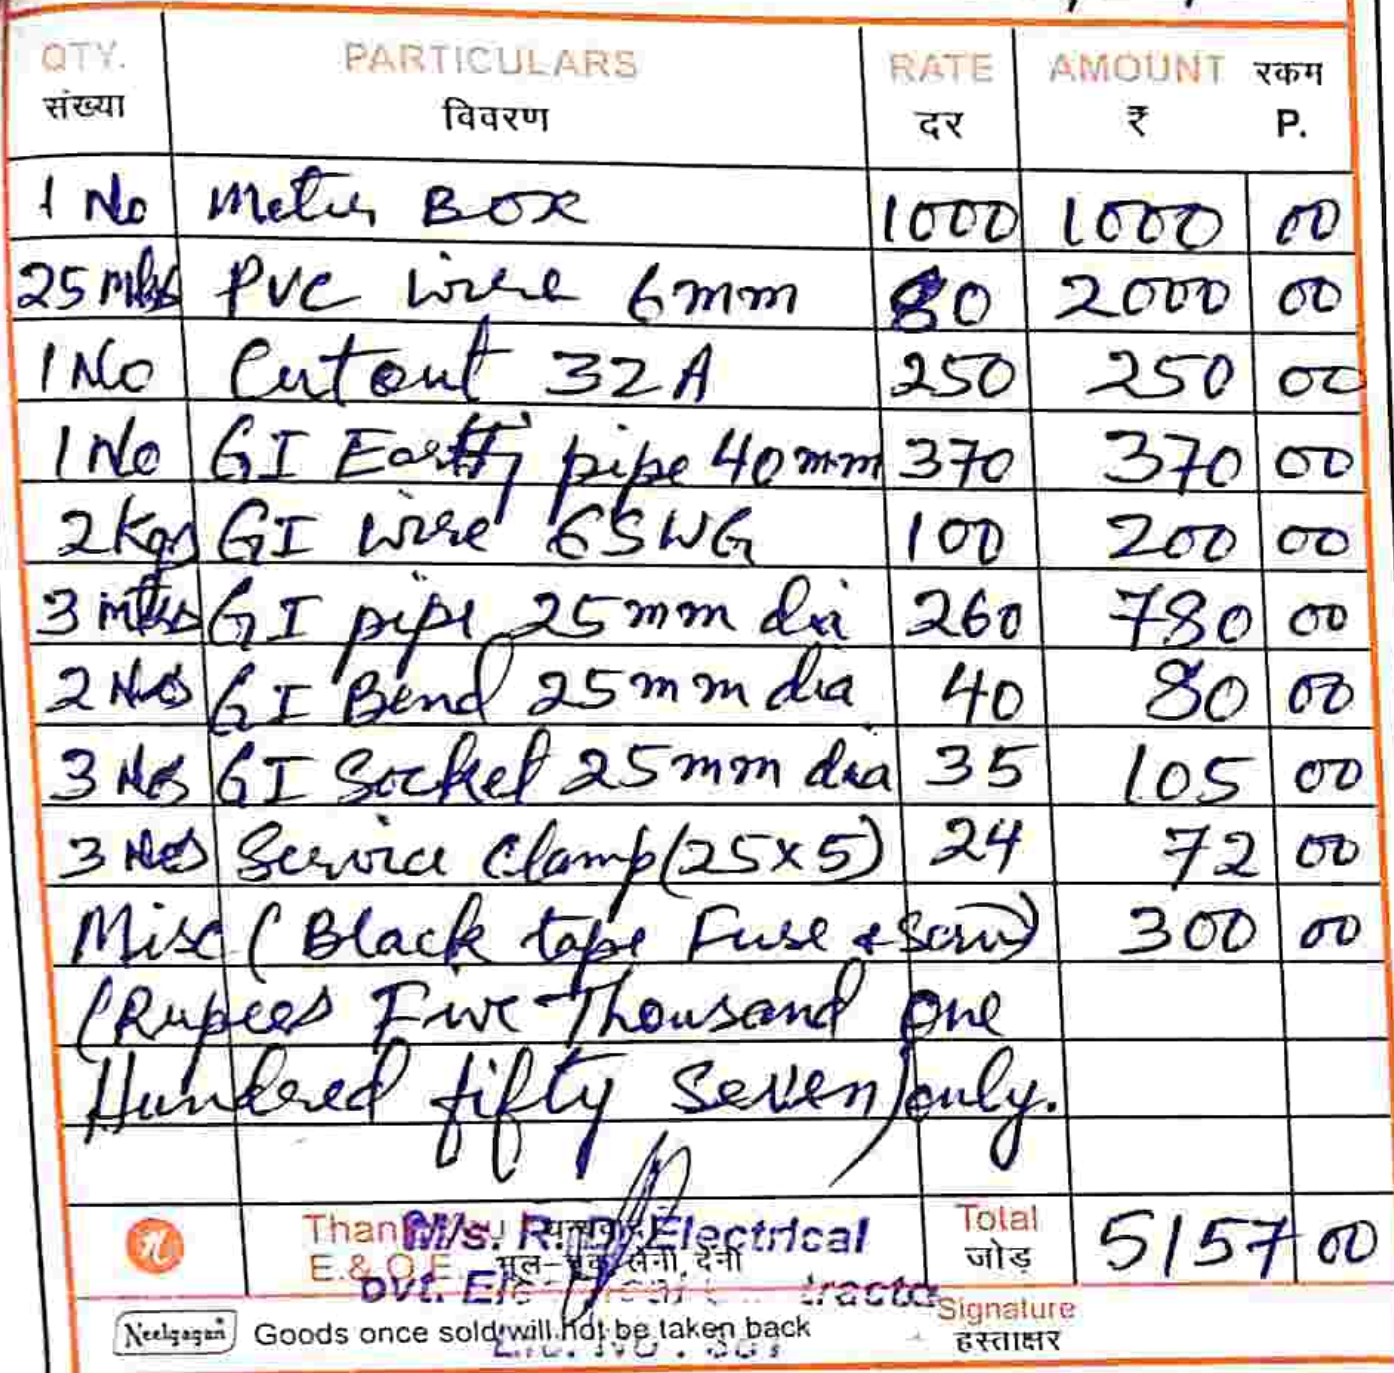 QTY. PARTICULARS RATE AMOUNT रकम
संख्या विवरण दर ₹ P.
1 No Meter Box 1000 1000 00
25 mtrs PVC wire 6mm 80 2000 00
1 No Cutout 32A 250 250 00
1 No GI Earth pipe 40mm 370 370 00
2 Kgs GI wire 6SWG 100 200 00
3 mtrs GI pipe 25mm dia 260 780 00
2 Nos GI Bend 25mm dia 40 80 00
3 Nos GI Socket 25mm dia 35 105 00
3 Nos Service Clamp (25x5) 24 72 00
Misc (Black tape Fuse & Screw) 300 00
(Rupees Five Thousand one
Hundred fifty Seven) only.
M/s. R. D. Electrical Total
E.& O.E. भूल-चूक लेनी, देनी जोड़ 5157 00
Pvt.
Signature
Neelgagan Goods once sold will not be taken back हस्ताक्षर